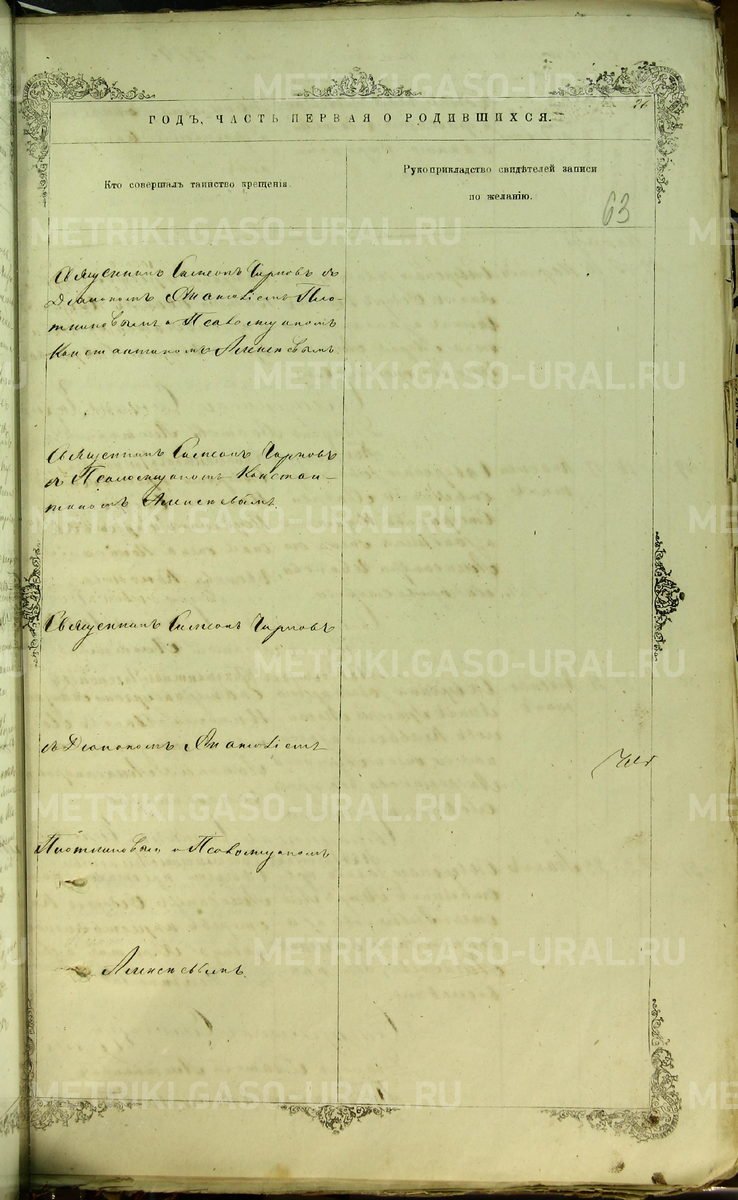 26
ГОДЪ, ЧАСТЬ ПЕРВАЯ О РОДИВШИХСЯ.
Кто совершалъ таинство крещенія.
Рукоприкладство свидѣтелей записи
по желанію.
63
Священникъ Симеонъ Чирковъ съ
Діакономъ Пло-
тниковымъ и Псаломщикомъ
Константиномъ Алексѣевымъ.
Священникъ Симеонъ Чирковъ
съ Псаломщикомъ Констан-
тиномъ Алексѣевымъ.
Священникъ Симеонъ Чирковъ
съ Діакономъ
Плотниковымъ и Псаломщикомъ
Алексѣевымъ.
METRIKI.GASO-URAL.RU